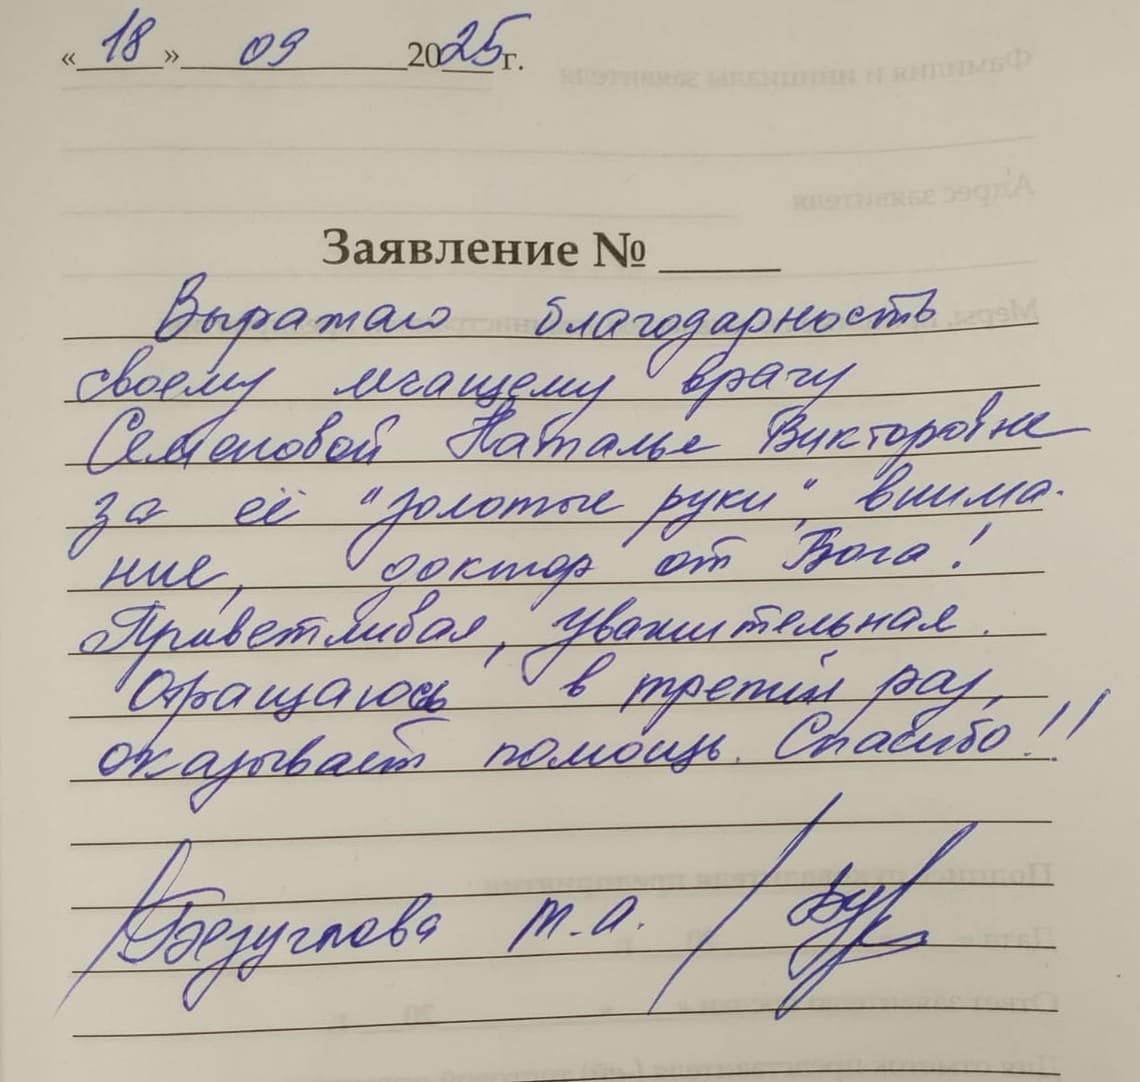 « 18 » 09 2025 г.
Заявление № ____
Выражаю благодарность
своему лечащему врачу
Семеновой Наталье Викторовне
за её "золотые руки", внима-
ние, доктор от Бога!
Приветливая, уважительная.
Обращаюсь в третий раз,
оказывает помощь. Спасибо!!!
/Безуглова Т.А. /